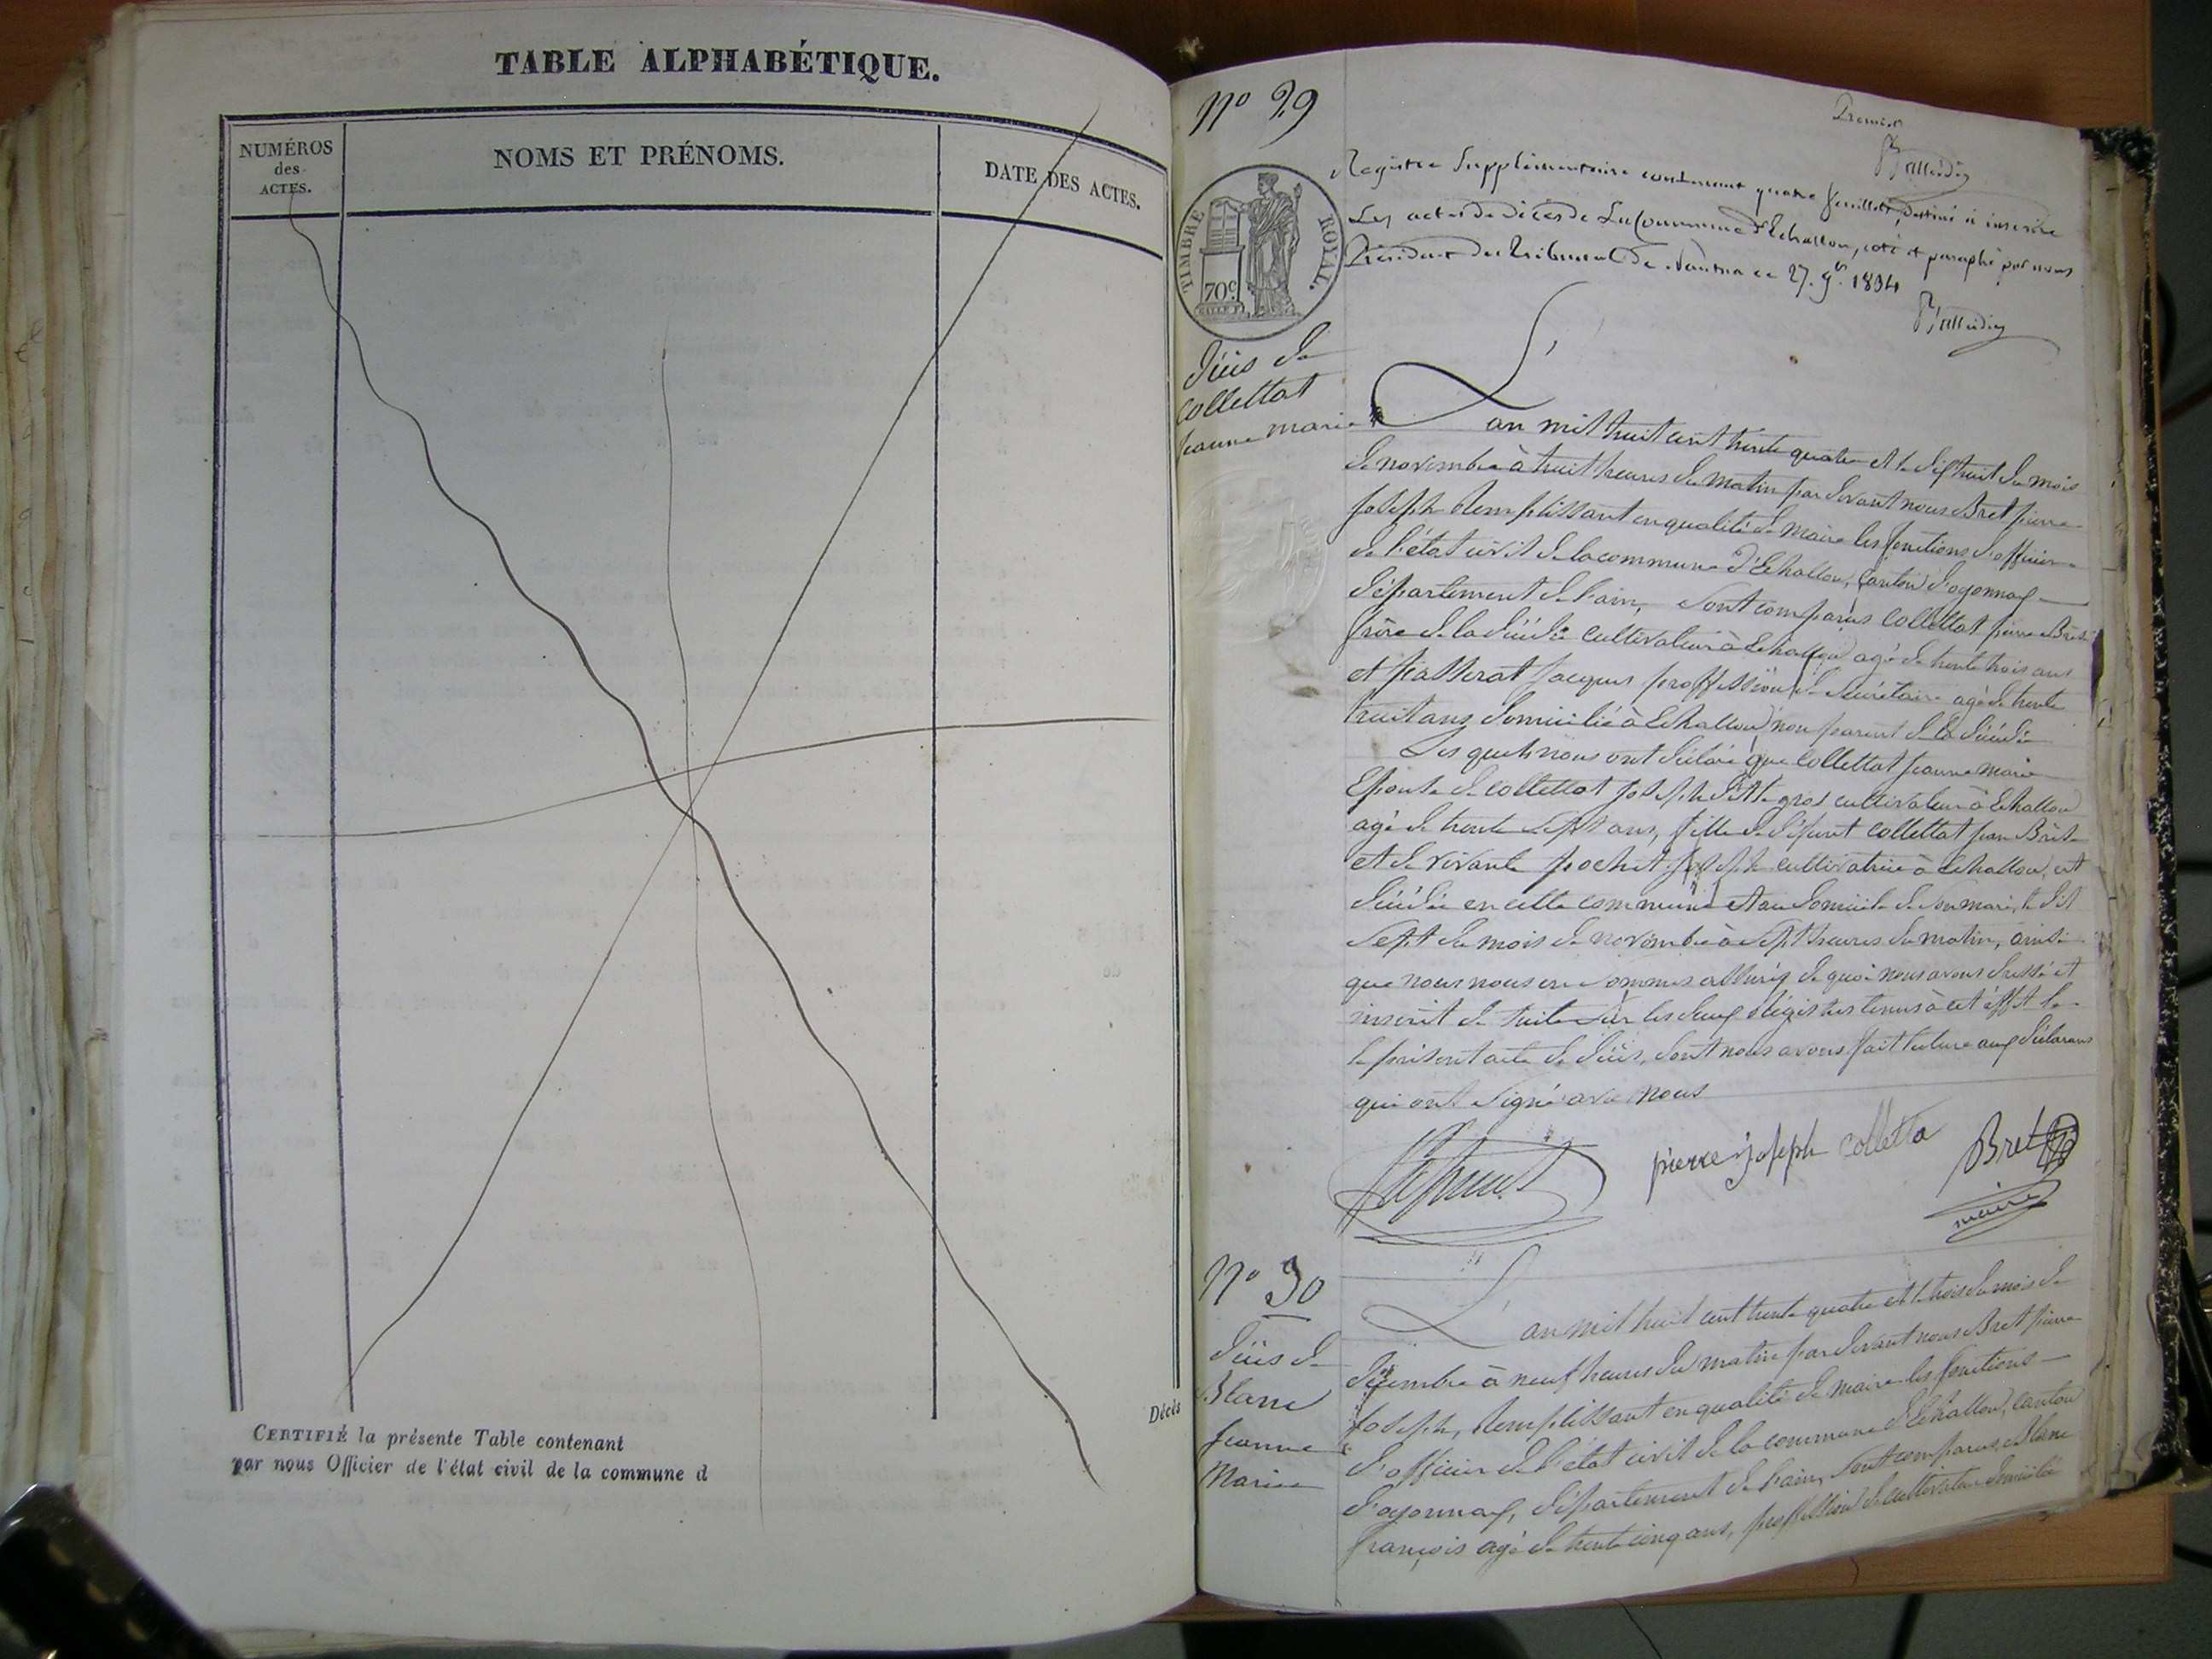 TABLE ALPHABÉTIQUE.
NUMÉROS
des
ACTES.
NOMS ET PRÉNOMS.
DATE DES ACTES.
CERTIFIÉ la présente Table contenant
par nous Officier de l'état civil de la commune d
Décès
Premier
nº 29
TIMBRE ROYAL.
70c
Registre Supplémentaire contenant quatre feuillets, destiné à inscrire
Les actes de décès de La Commune d'Echallon, coté et paraphé par nous
Président du Tribunal de Nantua ce 27. 9bre 1834
décès de
collettat
jeanne marie
L'an mil huit cent trente quatre et le dix huit du mois
de novembre à huit heures du matin par devant nous Bret pierre
joseph Remplissant en qualité de maire les fonctions d'officier
de l'état civil de la commune d'Echallon, canton d'oyonnax
département de l'ain, sont comparus collettat pierre
frère de la décédée cultivateur à Echallon agé de trente trois ans
et passerat jacques proffession de secrétaire agé de trente
huit ans domicilié à Echallon non parent de la décédée
Les quels nous ont déclaré que collettat jeanne marie
Epouse de collettat joseph dit le gros cultivateur à Echallon
agé de trente sept ans, fille de défunt collettat jean
et de vivante pochet cultivatrice à Echallon, est
décédée en cette commune et au domicile de son mari, le dix
sept du mois de novembre à sept heures du matin, ainsi
que nous nous en sommes assurés de quoi nous avons dressé et
inscrit de suite sur les deux Régistres tenus à cet éffet le
le présent acte de décès, dont nous avons fait lecture aux déclarans
qui ont signé avec nous
pierre joseph colletta
Bret
maire
nº 30
décès de
Blanc
jeanne
Marie
L'an mil huit cent trente quatre et le trois du mois de
décembre à neuf heures du matin par devant nous Bret pierre
joseph, Remplissant en qualité de maire les fonctions
d'officier de l'état civil de la commune d'Echallon, canton
d'oyonnax, département de l'ain, sont comparus Blanc
françois agé de trente cinq ans, proffession de cultivateur domicilié